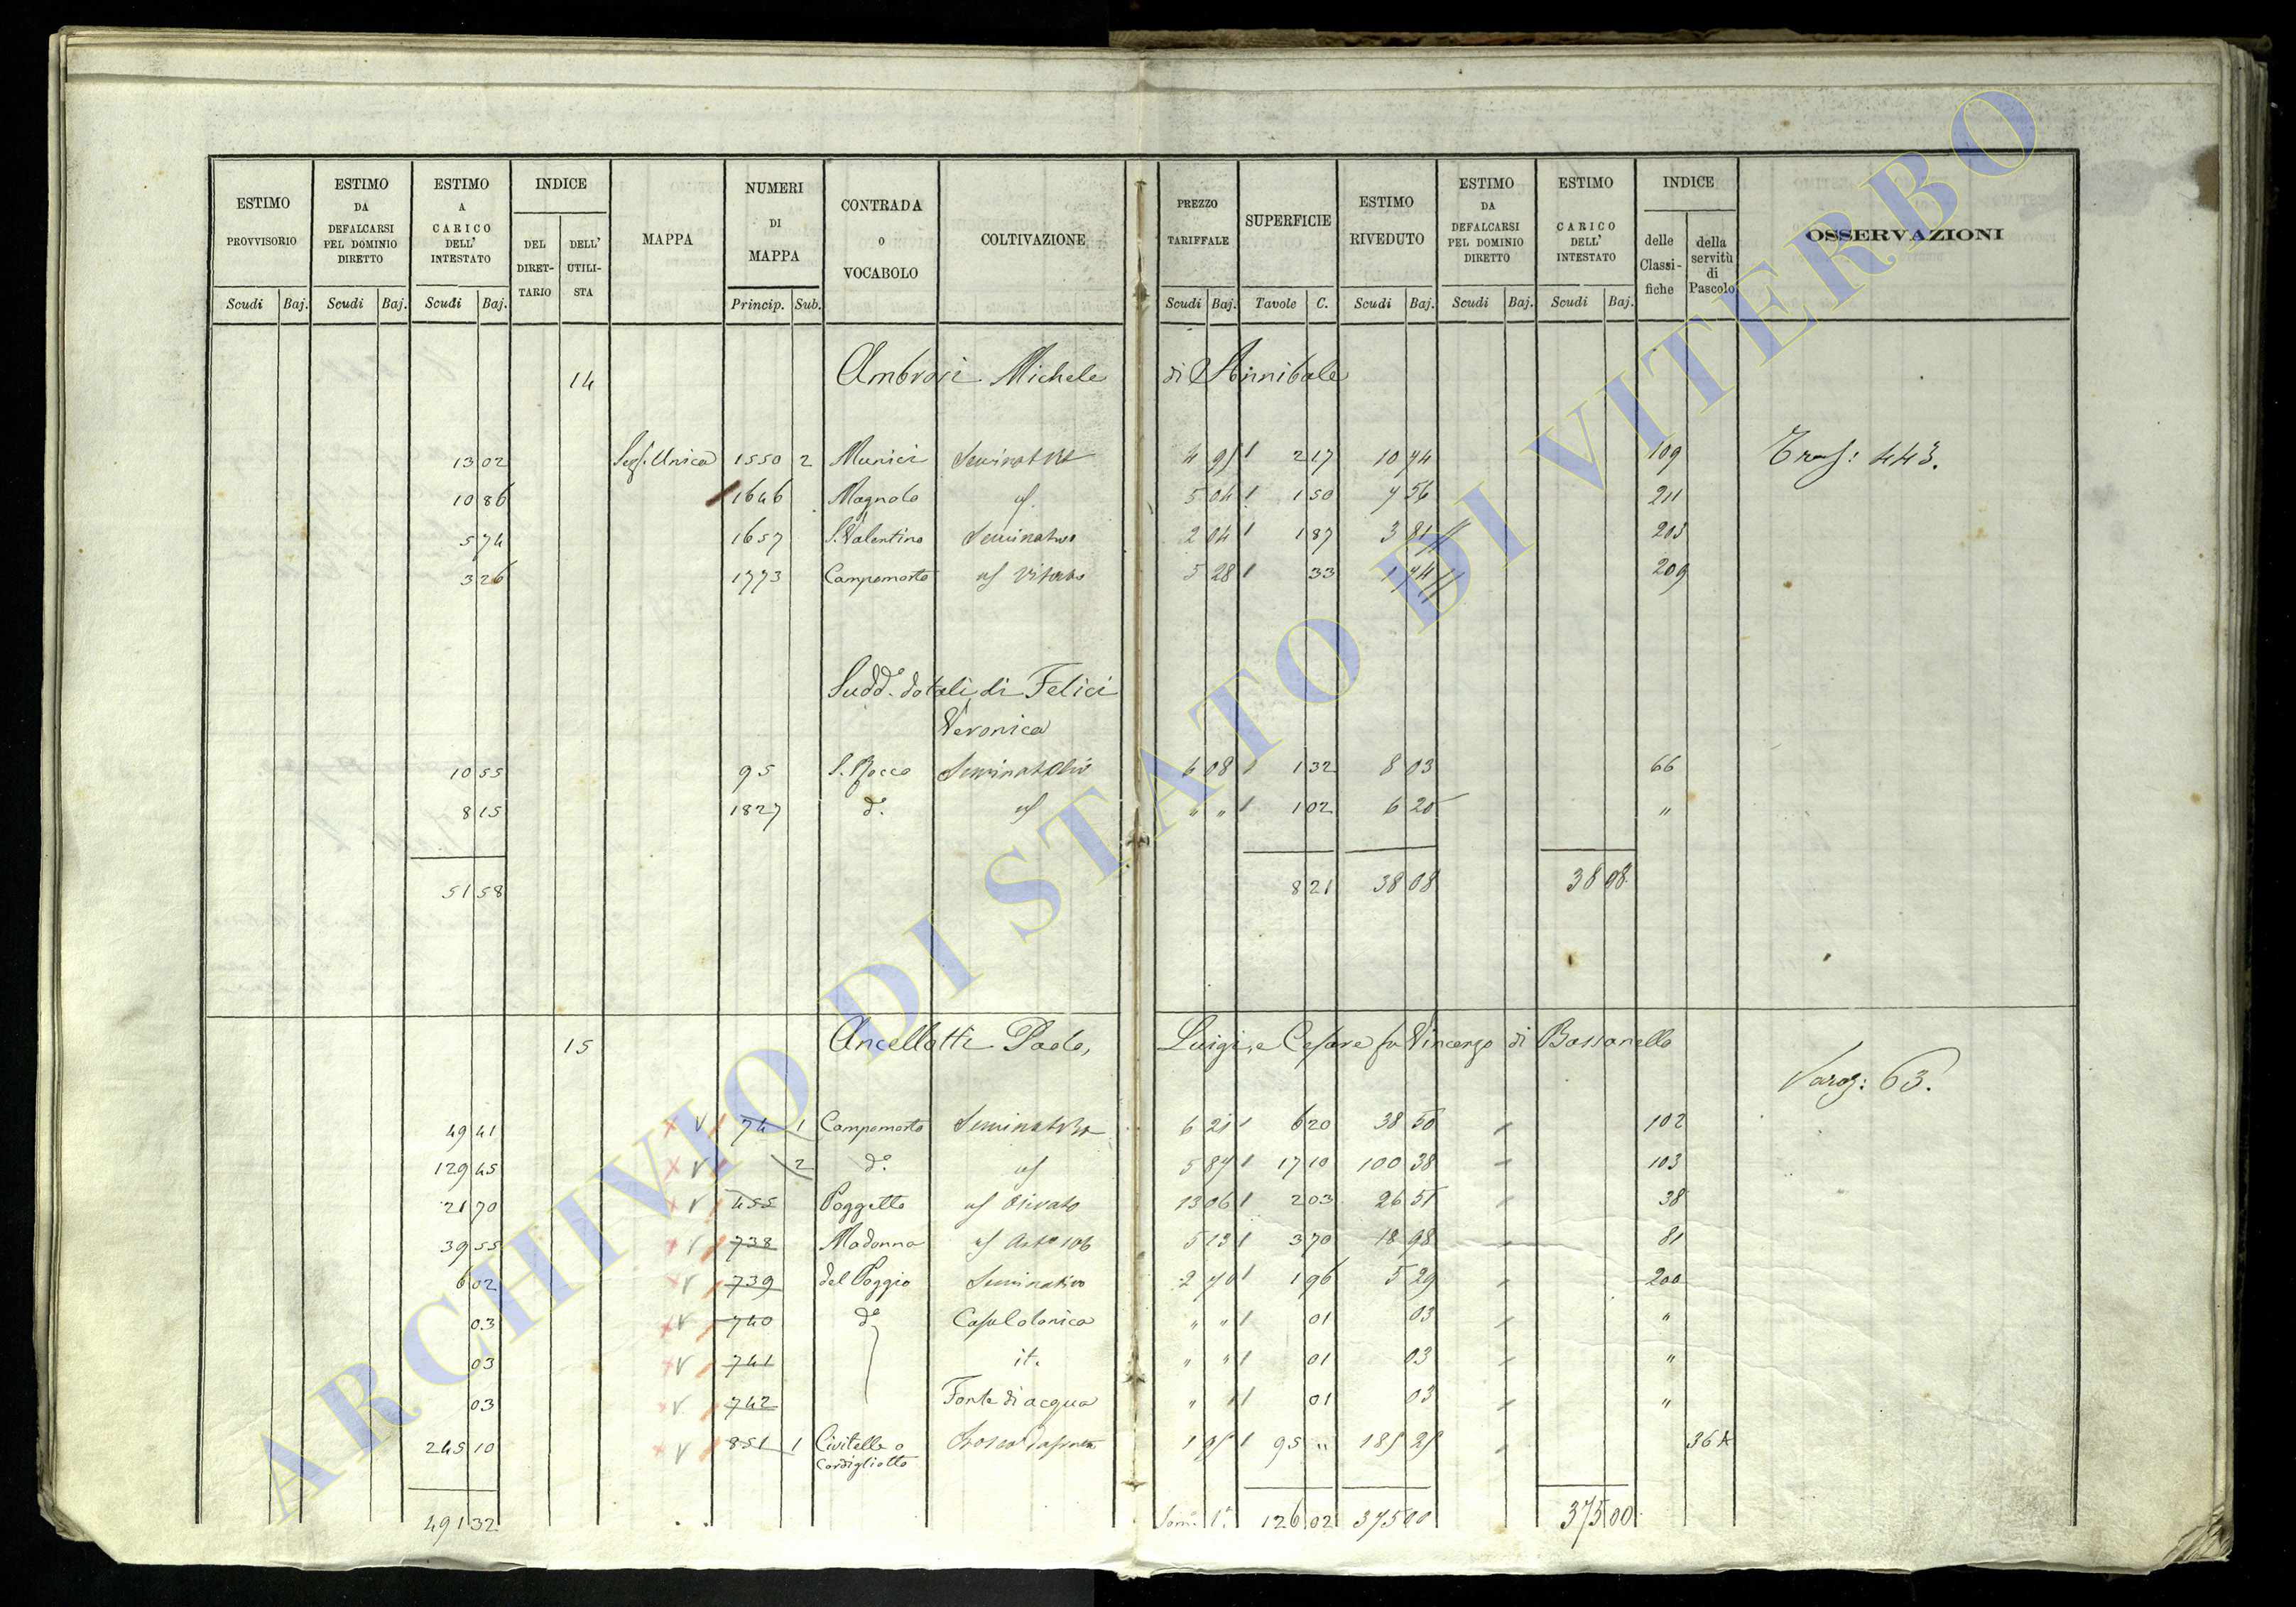 ESTIMO PROVVISORIO ESTIMO DA DEFALCARSI PEL DOMINIO DIRETTO ESTIMO A CARICO DELL' INTESTATO INDICE DEL DIRET-TARIO DELL' UTILI-STA MAPPA NUMERI DI MAPPA CONTRADA O VOCABOLO COLTIVAZIONE PREZZO TARIFFALE SUPERFICIE ESTIMO RIVEDUTO ESTIMO DA DEFALCARSI PEL DOMINIO DIRETTO ESTIMO CARICO DELL' INTESTATO INDICE delle Classi-fiche della servitù di Pascolo OSSERVAZIONI
Scudi Baj. Scudi Baj. Scudi Baj. Princip. Sub. Scudi Baj. Tavole C. Scudi Baj. Scudi Baj. Scudi Baj.
14 Ambrosi Michele di Annibale
13 02 Sez. Unica 1550 2 Munici 4 95 2 17 10 74 109 Trasf: 443.
10 86 1646 Magnalo 5 04 1 50 7 56 211
5 74 1657 S. Valentino Seminativo 2 04 1 87 3 81 203
3 26 1773 Campomorto Vitato 5 28 33 1 74 209
Sudd.o dotali di Felici
Veronica
10 55 95 S. Rocco 6 08 1 32 8 03 66
8 15 1827 d.o " " 1 02 6 20 "
51 58 8 21 38 08 38 08
15 Ancellotti Paolo, Luigi, e Cesare fu Vincenzo di Bassanello
Varaz: 63.
49 41 V 74 1 Campomorto 6 21 6 20 38 50 102
129 45 V 2 d.o 5 87 17 10 100 38 103
21 70 V 455 Poggetto Olivato 13 06 2 03 26 51 38
39 55 V 738 Madonna 5 13 3 70 18 98 81
6 02 V 739 del Poggio Seminativo 2 70 1 96 5 29 200
03 V 740 d.o Casa Colonica " " 01 03 "
03 V 741 it. " " 01 03 "
03 V 742 Fonte di acqua " 01 03 "
245 10 V 851 1 Civitella o Cordigliotto 1 95 95 " 185 25
491 32 Som. 1a. 126 02 375 00 375 00
ARCHIVIO DI STATO DI VITERBO